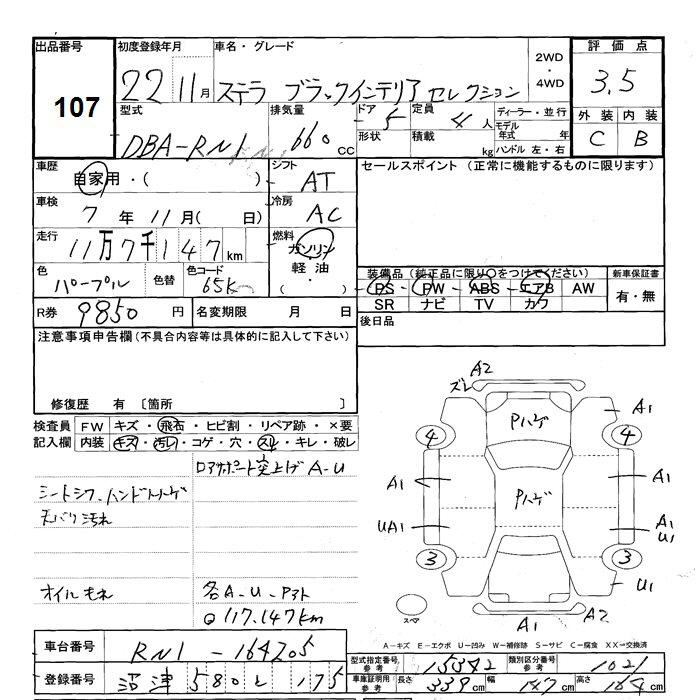 出品番号
107
初度登録年月
22 11月
車名・グレード
ステラ ブラックインテリアセレクション
2WD
・
4WD
評価点
3.5
外装 内装
C B
型式
DBA-RN1
排気量
660 cc
ドア
5
形状
定員
4人
積載
kg
ディーラー・並行
モデル
年式 年
ハンドル 左・右
車歴
自家用・( )
シフト
AT
セールスポイント (正常に機能するものに限ります)
車検
7年 11月( 日)
冷房
AC
走行
11万7千147km
燃料
ガソリン
軽油
( )
色
パープル
色替
色コード
65K
装備品 (純正品に限り○をつけてください)
PS・PW・ABS・エアB AW
SR ナビ TV カワ
新車保証書
有・無
R券
9850円
名変期限 月 日
後日品
注意事項申告欄 (不具合内容等は具体的に記入して下さい)
修復歴 有 〔箇所 〕
検査員
記入欄
FW キズ・飛石・ヒビ割・リペア跡・×要
内装 キズ・汚レ・コゲ・穴・スレ・キレ・破レ
ロアサポート突上げ A-U
シートシワ、ハンドルハゲ
天バリ汚れ
オイルもれ
各A-U-Pスト
117.147km
A2
ズレ
Pハゲ
A1
4
4
A1
Pハゲ
A1
UA1
A1
U1
3
3
U1
スペア
A1
A2
A－キズ E－エクボ U－凹み W－補修跡 S－サビ C－腐食 XX→交換済
車台番号
RN1-164205
登録番号
沼津 580 と 175
型式指定番号
参考
15342
類別区分番号
参考
1021
車庫証明用
参考
長さ
339cm
幅
147cm
高さ
164cm